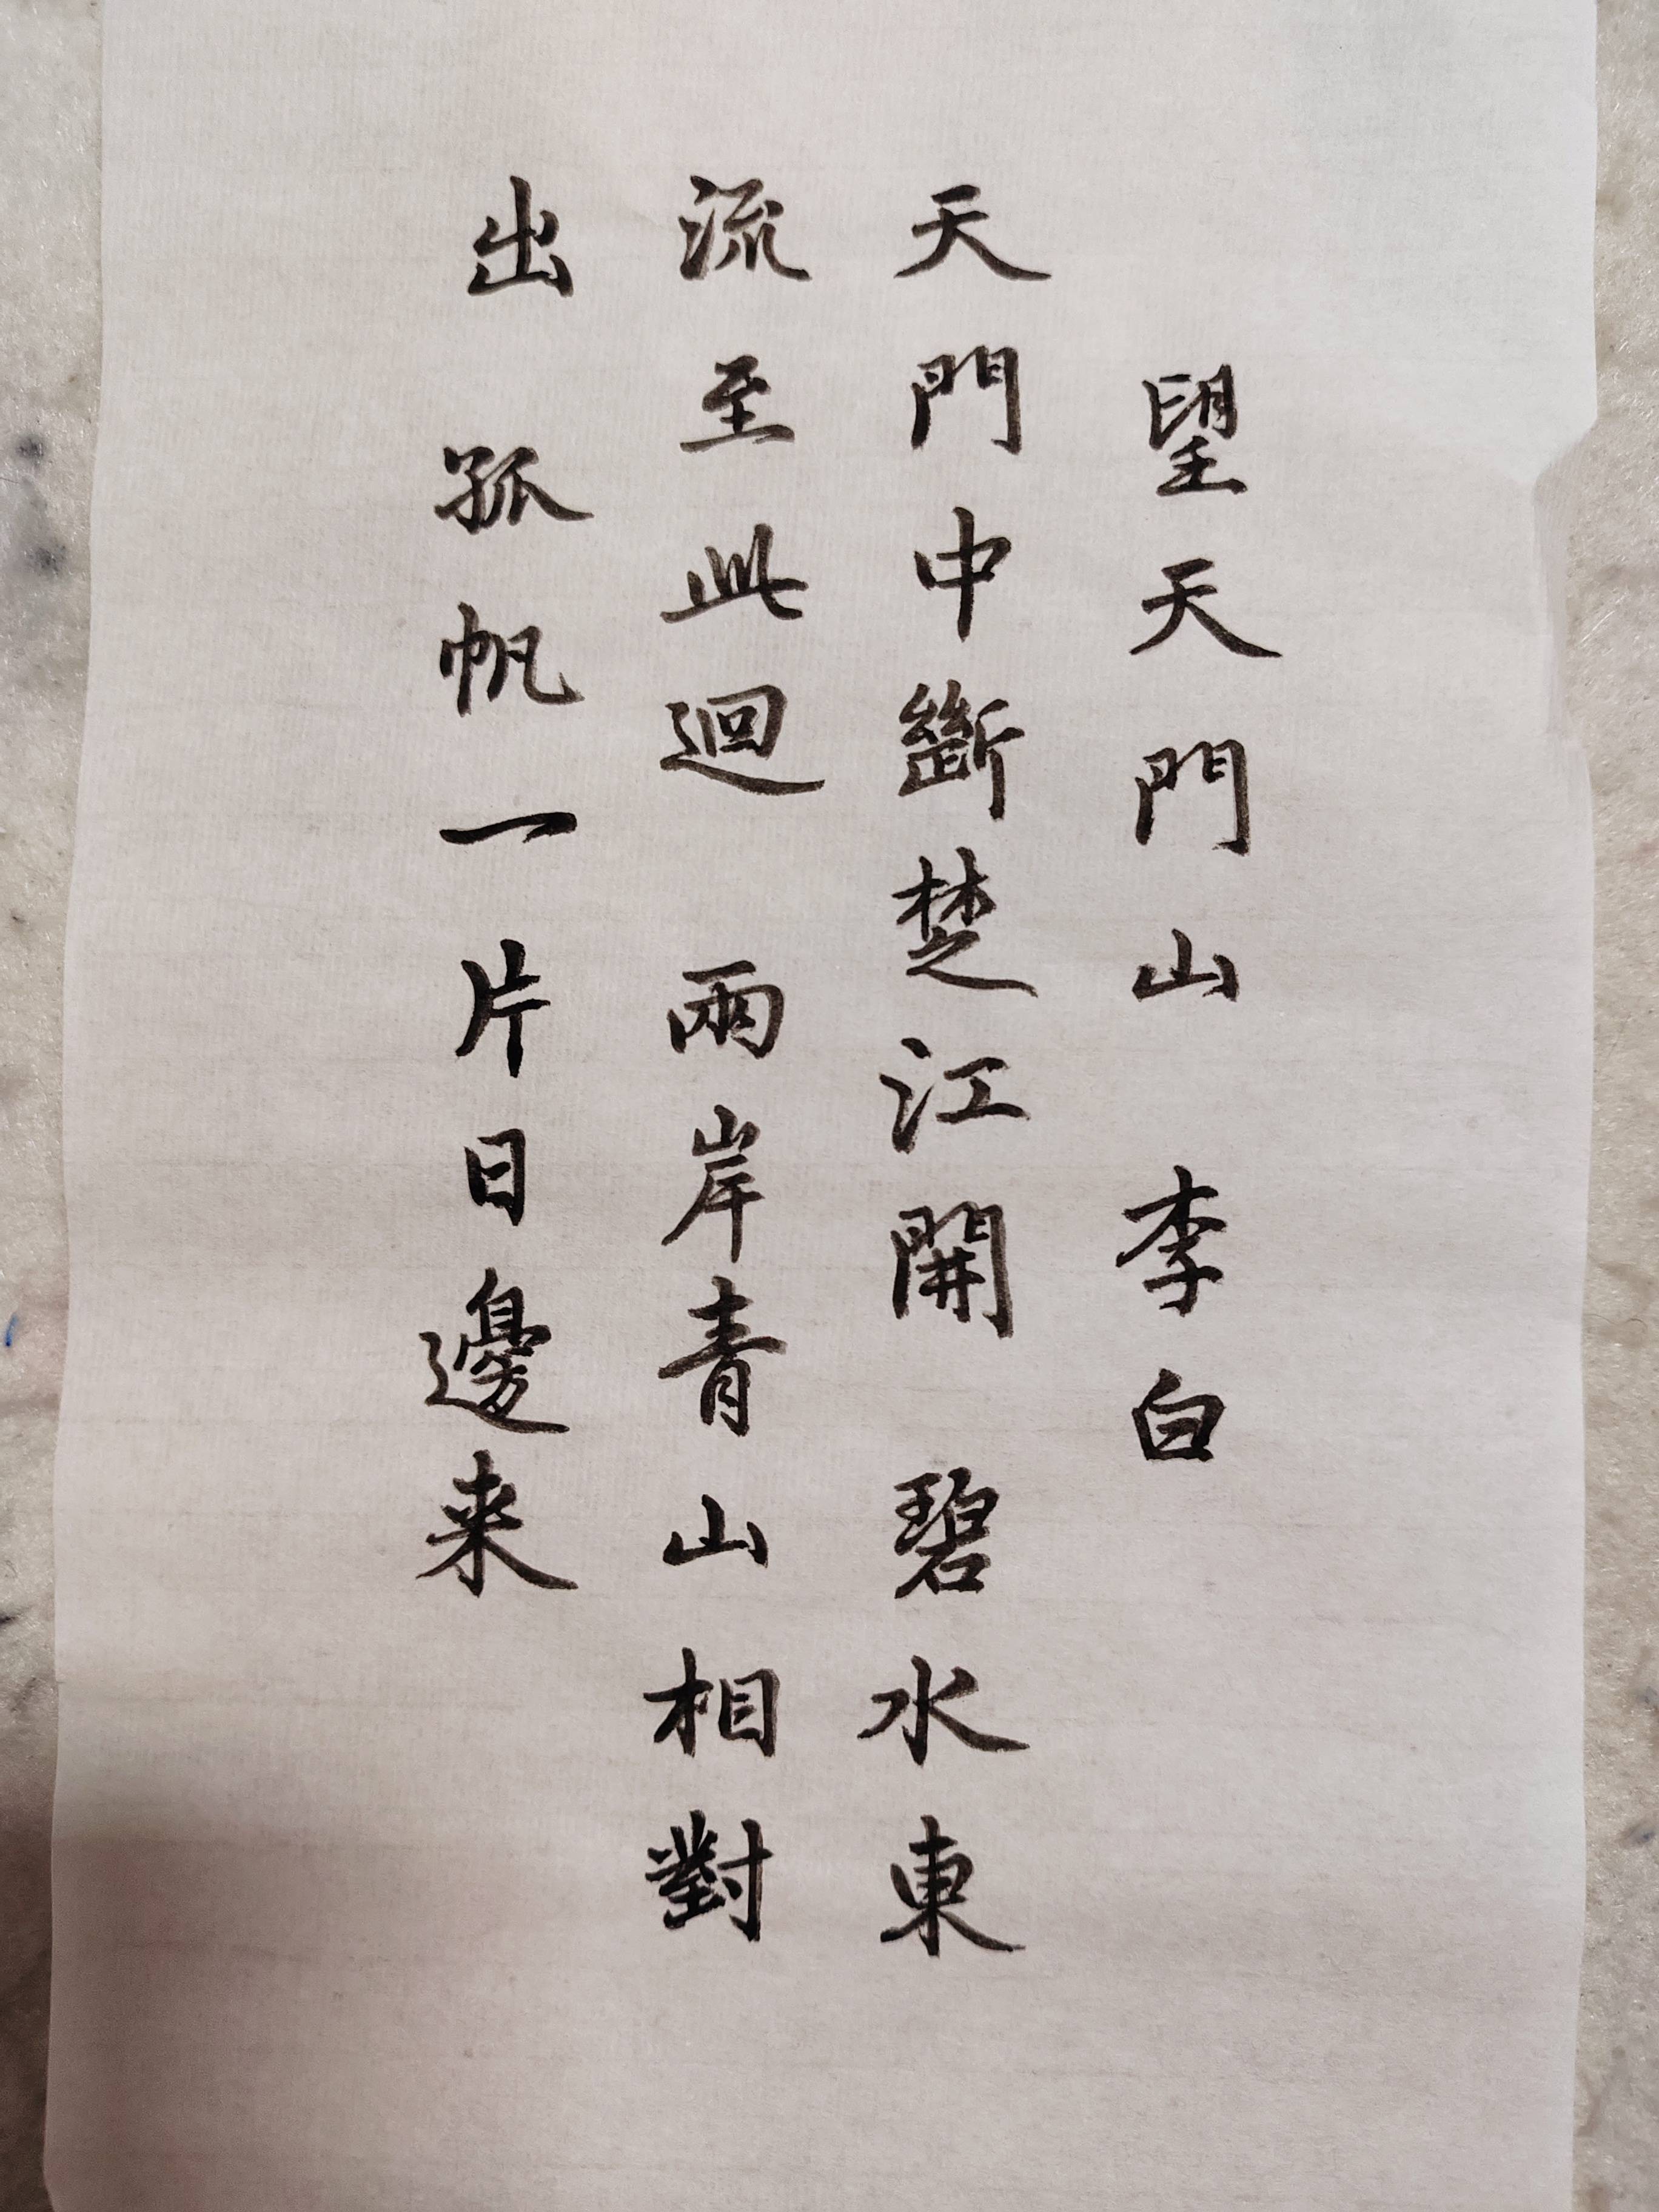 望天門山 李白
天門中斷楚江開 碧水東
流至此迴 兩岸青山相對
出 孤帆一片日邊来